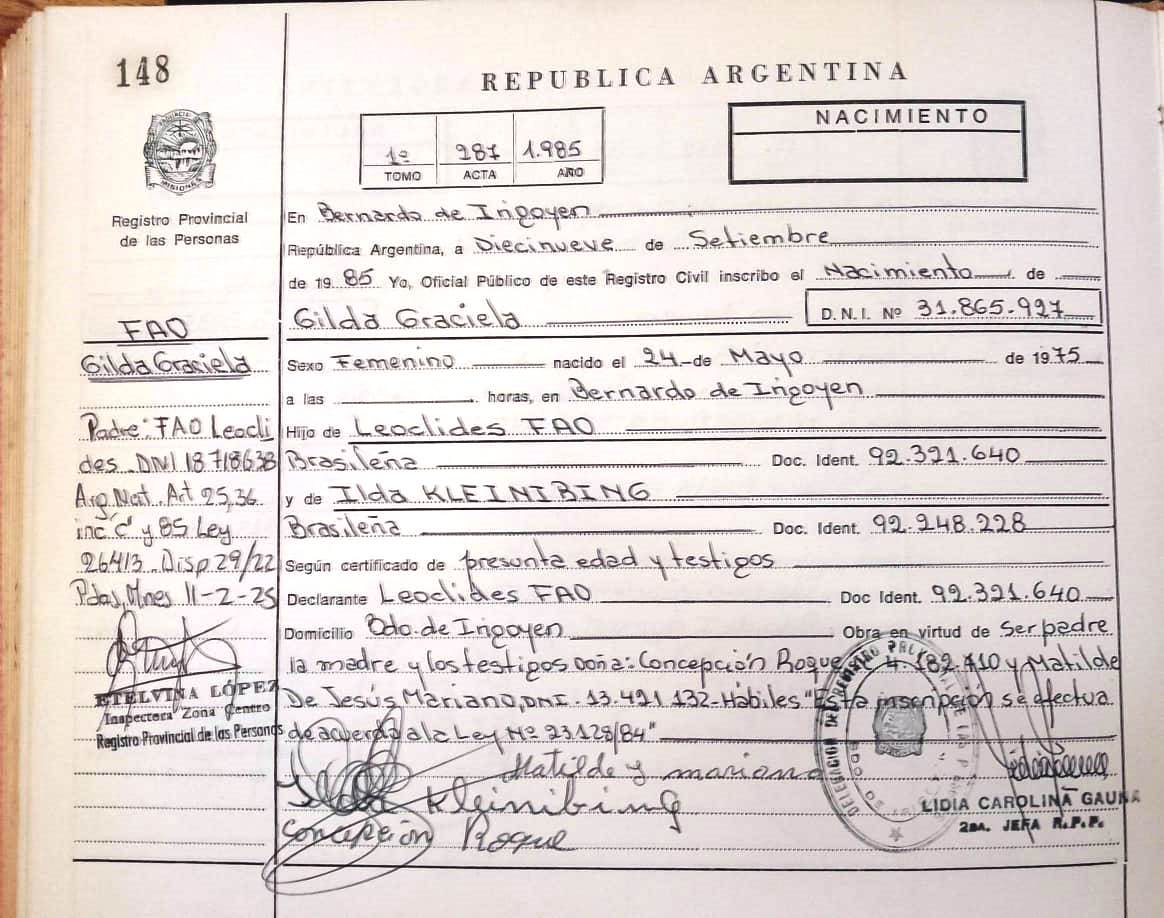 148
REPUBLICA ARGENTINA
1º 287 1.985
TOMO ACTA AÑO
NACIMIENTO
MISIONES
Registro Provincial
de las Personas
FAO
Gilda Graciela
Padre: FAO Leocli
des DNI 18718638
Arg. Nat. Art 25,36
inc "c" y 85 Ley
26413 Disp. 29/22
Pdas, Mnes 11-2-25
ETELVINA LÓPEZ
Inspectora Zona Centro
Registro Provincial de las Personas
En Bernardo de Irigoyen
República Argentina, a Diecinueve de Setiembre
de 19 85 Yo, Oficial Público de este Registro Civil inscribo el Nacimiento de
Gilda Graciela D.N.I. Nº 31.865.927
Sexo Femenino nacido el 24 de Mayo de 1975
a las horas, en Bernardo de Irigoyen
Hijo de Leoclides FAO
Brasileña Doc. Ident. 92.321.640
y de Ilda KLEINIBING
Brasileña Doc. Ident. 92.248.228
Según certificado de presunta edad y testigos
Declarante Leoclides FAO Doc Ident. 92.321.640
Domicilio Bdo. de Irigoyen Obra en virtud de Ser padre
la madre y los testigos Doña: Concepción Roque 4.182.710 y Matilde
De Jesús Mariano, DNI. 13.421.132-Hábiles "Esta inscripción se efectua
de acuerdo a la Ley Nº 23.128/84"
Matilde y mariano
Ilda Kleinibing
Concepción Roque
LIDIA CAROLINA GAUNA
2DA. JEFA R.P.P.